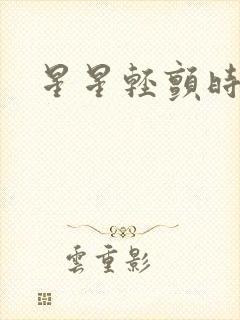 星星輕顫時
雲重影